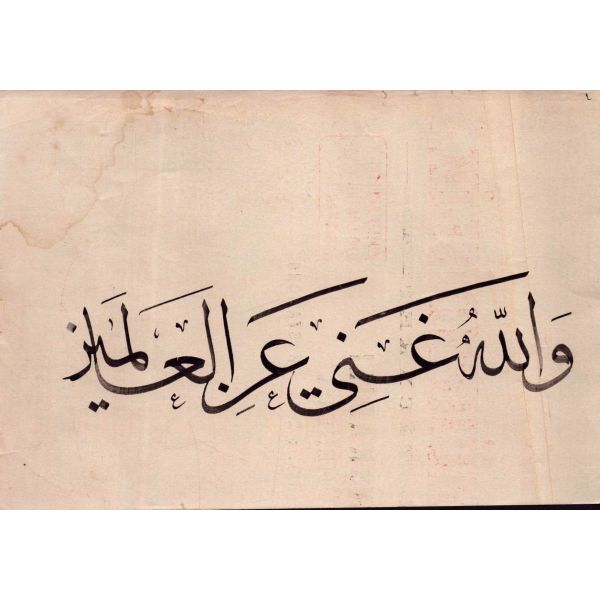 والله غني عن العالمين